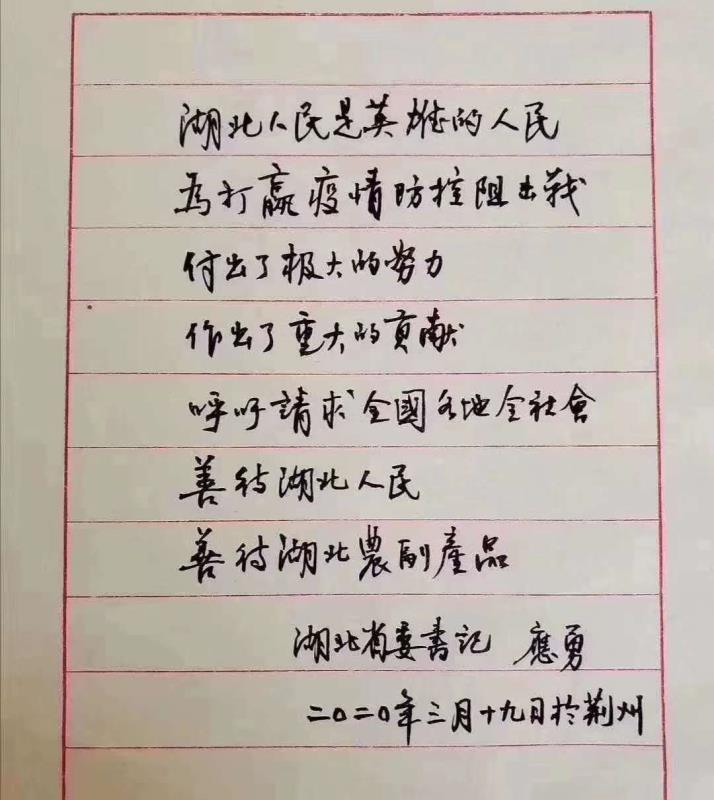 湖北人民是英雄的人民
為打贏疫情防控阻击战
付出了极大的努力
作出了重大的貢献
呼吁請求全國各地全社會
善待湖北人民
善待湖北農副產品
湖北省委書記 應勇
二〇二〇年三月十九日於荆州